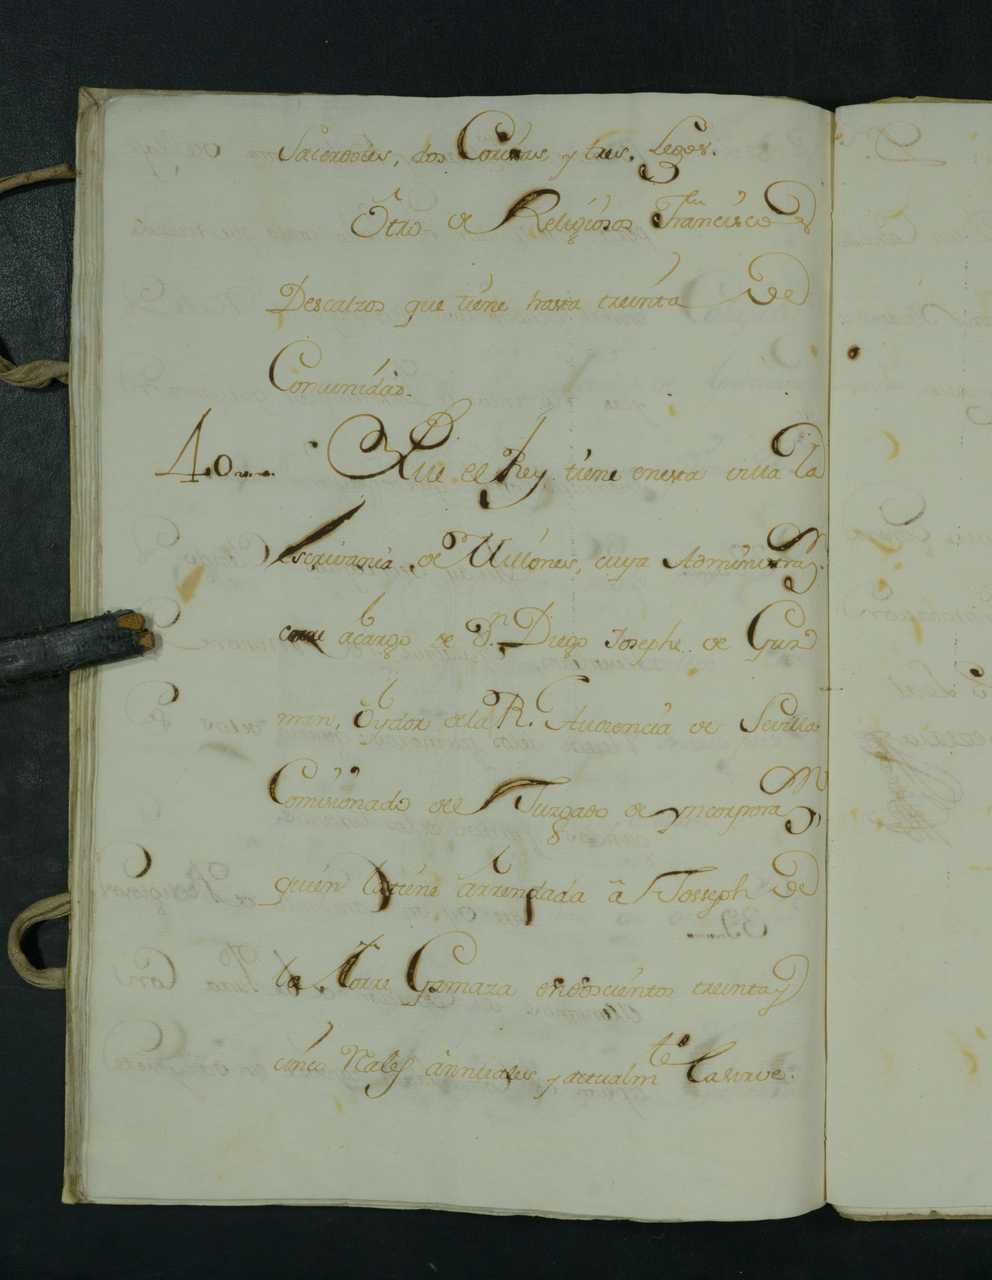 Sacerdotes, dos Coristas, y tres Legos.
Otro de Religiosos Francisco
Descalzos que tiene hasta treinta de
Comunidad.
40... Que el Rey tiene enesta villa la
escrivania de Millones, cuya Administraz.on
corre acargo de Dn. Diego Joseph de Guz
man, Oydor dela Rl. Audiencia de Sevilla
Comisionado del Juzgado de yncorporaz.on
quien la tiene arrendada â Josseph de
la Torre Gamaza endoscientos treinta y
cinco Rales ânnuales y actualmte. la sirve.